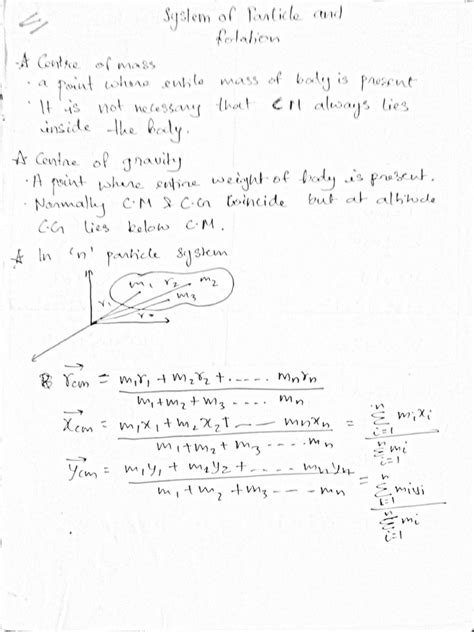 System of Particle and
Rotation
☆ Centre of mass
· a point where entire mass of body is present
· It is not necessary that CM always lies
inside the body.
☆ Centre of gravity
· A point where entire weight of body is present.
· Normally C.M & C.G Coincide but at altitude
C.G lies below C.M.
☆ In 'n' particle system
m₁ r₂ m₂
r₁ m₃
r
r⃗cm = m₁r₁ + m₂r₂ + ..... mₙrₙ
m₁+m₂+m₃ .... mₙ
x⃗cm = m₁x₁ + m₂x₂ + ---- mₙxₙ = Σⁿᵢ₌₁ mᵢxᵢ
m₁+m₂+m₃ ---- mₙ Σⁿᵢ₌₁ mᵢ
y⃗cm = m₁y₁ + m₂y₂ + ..... mₙyₙ = Σⁿᵢ₌₁ mᵢyᵢ
m₁+m₂+m₃ ---- mₙ Σⁿᵢ₌₁ mᵢ